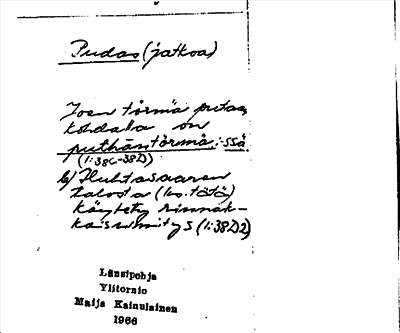 Pudas (jatkoa)
Joen törmä putaan
kohdalla on
puthäntörmä, -ssä
(1:38C-38D)
b) Huhtasaaren
talosta (ks. tätä)
käytetty rinnak-
kaisnimitys (1:38D2)
Länsipohja
Ylitornio
Maija Kainulainen
1966